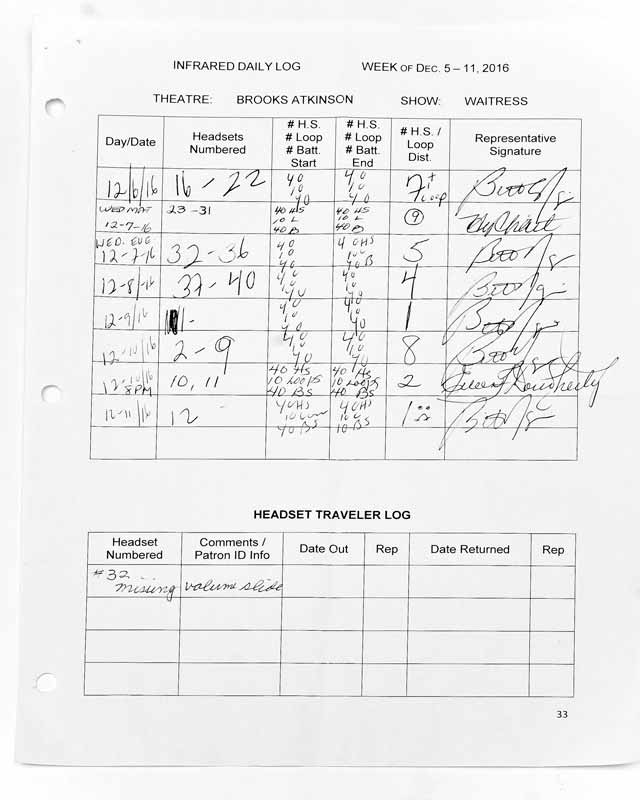 INFRARED DAILY LOG WEEK OF DEC. 5 – 11, 2016
THEATRE: BROOKS ATKINSON SHOW: WAITRESS
Day/Date Headsets Numbered # H.S. # Loop # Batt. Start # H.S. # Loop # Batt. End # H.S. / Loop Dist. Representative Signature
12/6/16 16 - 22 40 10 40 40 10 40 7 + 1 LOOP
WED MAT 12-7-16 23 - 31 40 HS 10 L 40 B 40 HS 10 L 40 B 9
WED. EVE 12-7-16 32 - 36 40 10 40 40HS 10 40B 5
12-8/-16 37 - 40 40 10 40 40 10 40 4
12-9/16 40 10 40 40 10 40 1
12-10/16 2 - 9 40 10 40 40 10 40 8
12-10/16 8PM 10, 11 40 HS 10 LOOPS 40 BS 40 HS 10 LOOPS 40 BS 2
12-11/16 12 40HS 40 BS 40HS 10 BS 1
HEADSET TRAVELER LOG
Headset Numbered Comments / Patron ID Info Date Out Rep Date Returned Rep
#32
missing volume slide
33